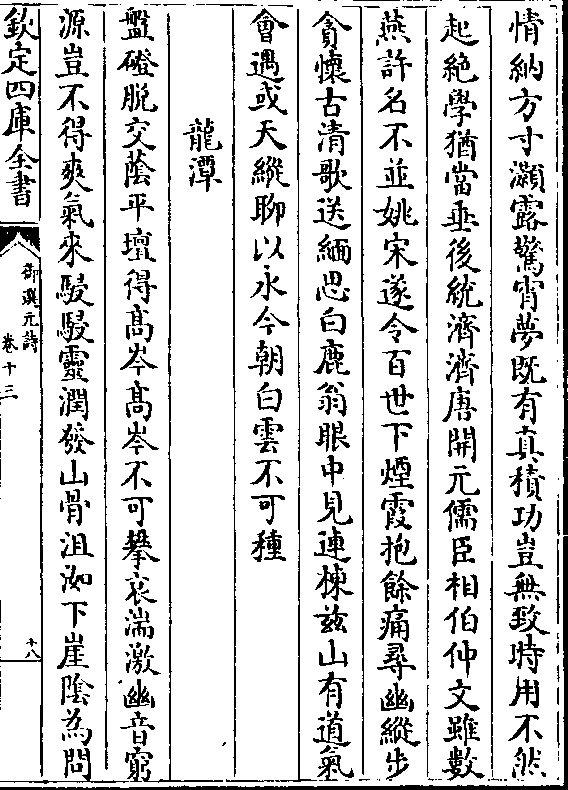 情納方寸灝露驚宵夢既有真積功豈無致時用不然
起絶學猶當垂後統濟濟唐開元儒臣相伯仲文雖數
燕許名不並姚宋遂令百世下煙霞抱餘痛尋幽縱步
貪懷古清歌送緬思白鹿翁眼中見連棟兹山有道氣
會遇或天縱聊以永今朝白雲不可種
龍潭
盤磴脱交蔭平壇得髙岑髙岑不可攀哀湍激幽音窮
源豈不得爽氣來駸駸靈潤發山骨沮洳下崖陰為問
欽定四庫全書
御選元詩
卷十三
十八